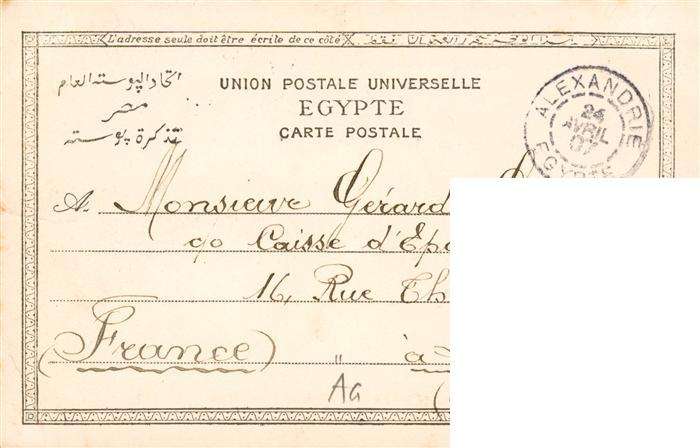 L'adresse seule doit être écrite de ce côté
اتحاد البوسته العام
مصر
تذكرة بوسته
UNION POSTALE UNIVERSELLE
EGYPTE
CARTE POSTALE
ALEXANDRIE
24
AVRIL
07
EGYPTE
A. Monsieur Gérard
90 Caisse d'Epa
16, Rue Th
(France) " à
AG